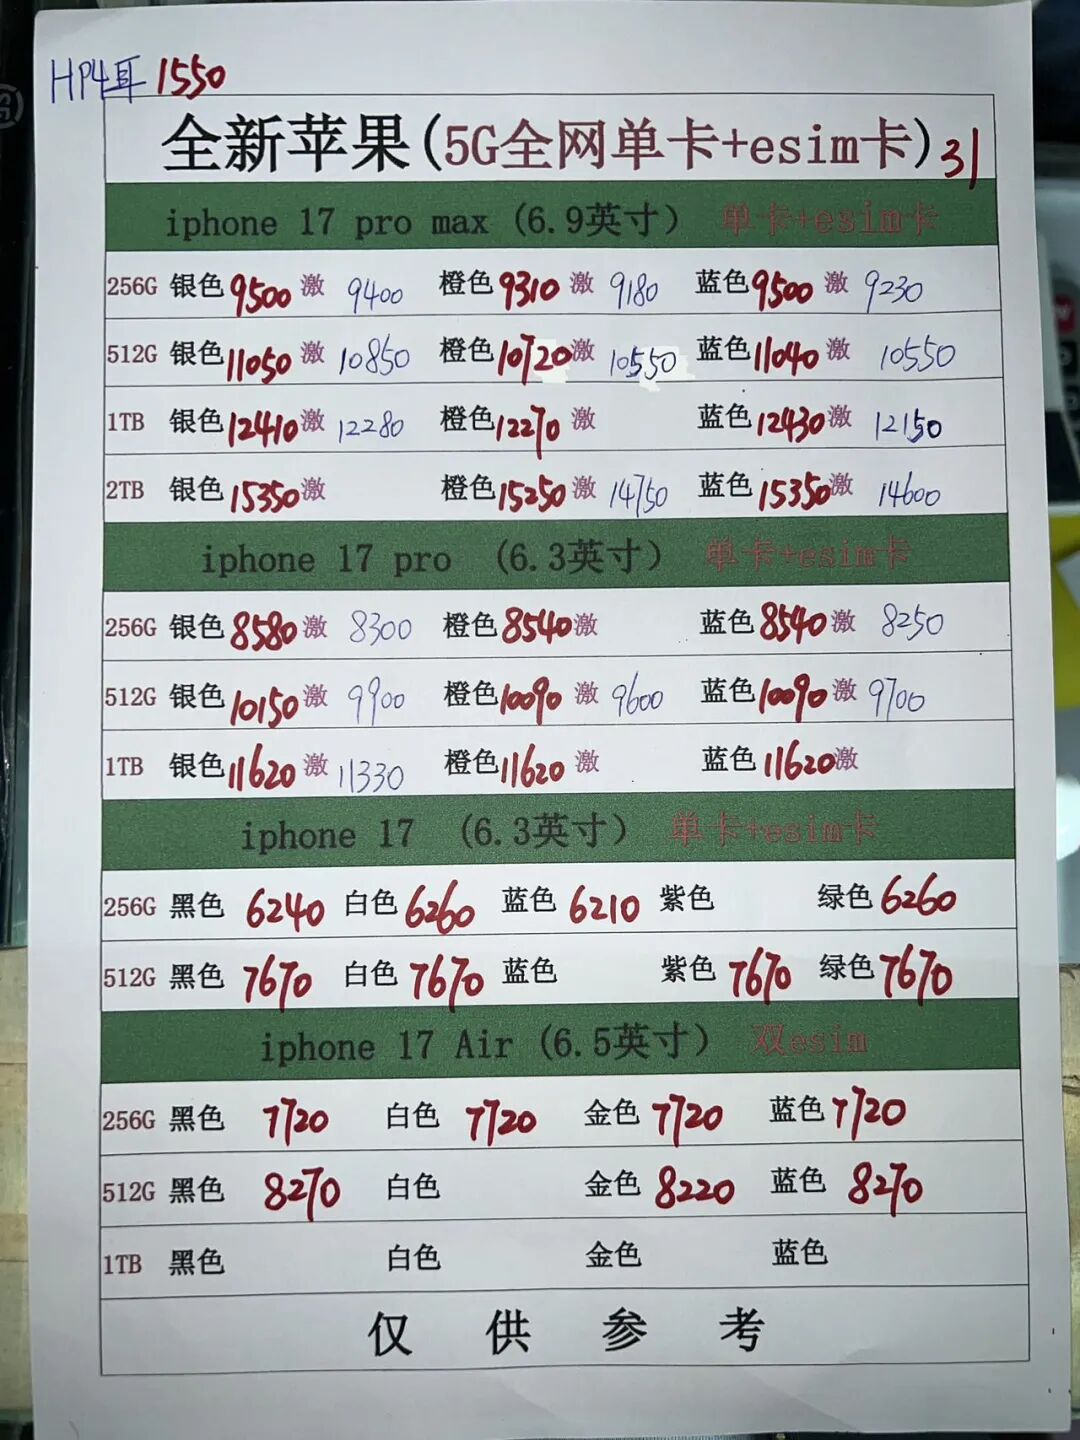 HP4耳 1550
全新苹果(5G全网单卡+esim卡) 31
iphone 17 pro max (6.9英寸) 单卡+esim卡
256G 银色 9500 激 9400 橙色 9310 激 9180 蓝色 9500 激 9230
512G 银色 11050 激 10850 橙色 10720 激 10550 蓝色 11040 激 10550
1TB 银色 12410 激 12280 橙色 12270 激 蓝色 12430 激 12150
2TB 银色 15350 激 橙色 15250 激 14750 蓝色 15350 激 14600
iphone 17 pro (6.3英寸) 单卡+esim卡
256G 银色 8580 激 8300 橙色 8540 激 蓝色 8540 激 8250
512G 银色 10150 激 9900 橙色 10090 激 9600 蓝色 10090 激 9700
1TB 银色 11620 激 11330 橙色 11620 激 蓝色 11620 激
iphone 17 (6.3英寸) 单卡+esim卡
256G 黑色 6240 白色 6260 蓝色 6210 紫色 绿色 6260
512G 黑色 7670 白色 7670 蓝色 紫色 7670 绿色 7670
iphone 17 Air (6.5英寸) 双esim
256G 黑色 7720 白色 7720 金色 7720 蓝色 7720
512G 黑色 8270 白色 金色 8220 蓝色 8270
1TB 黑色 白色 金色 蓝色
仅供参考